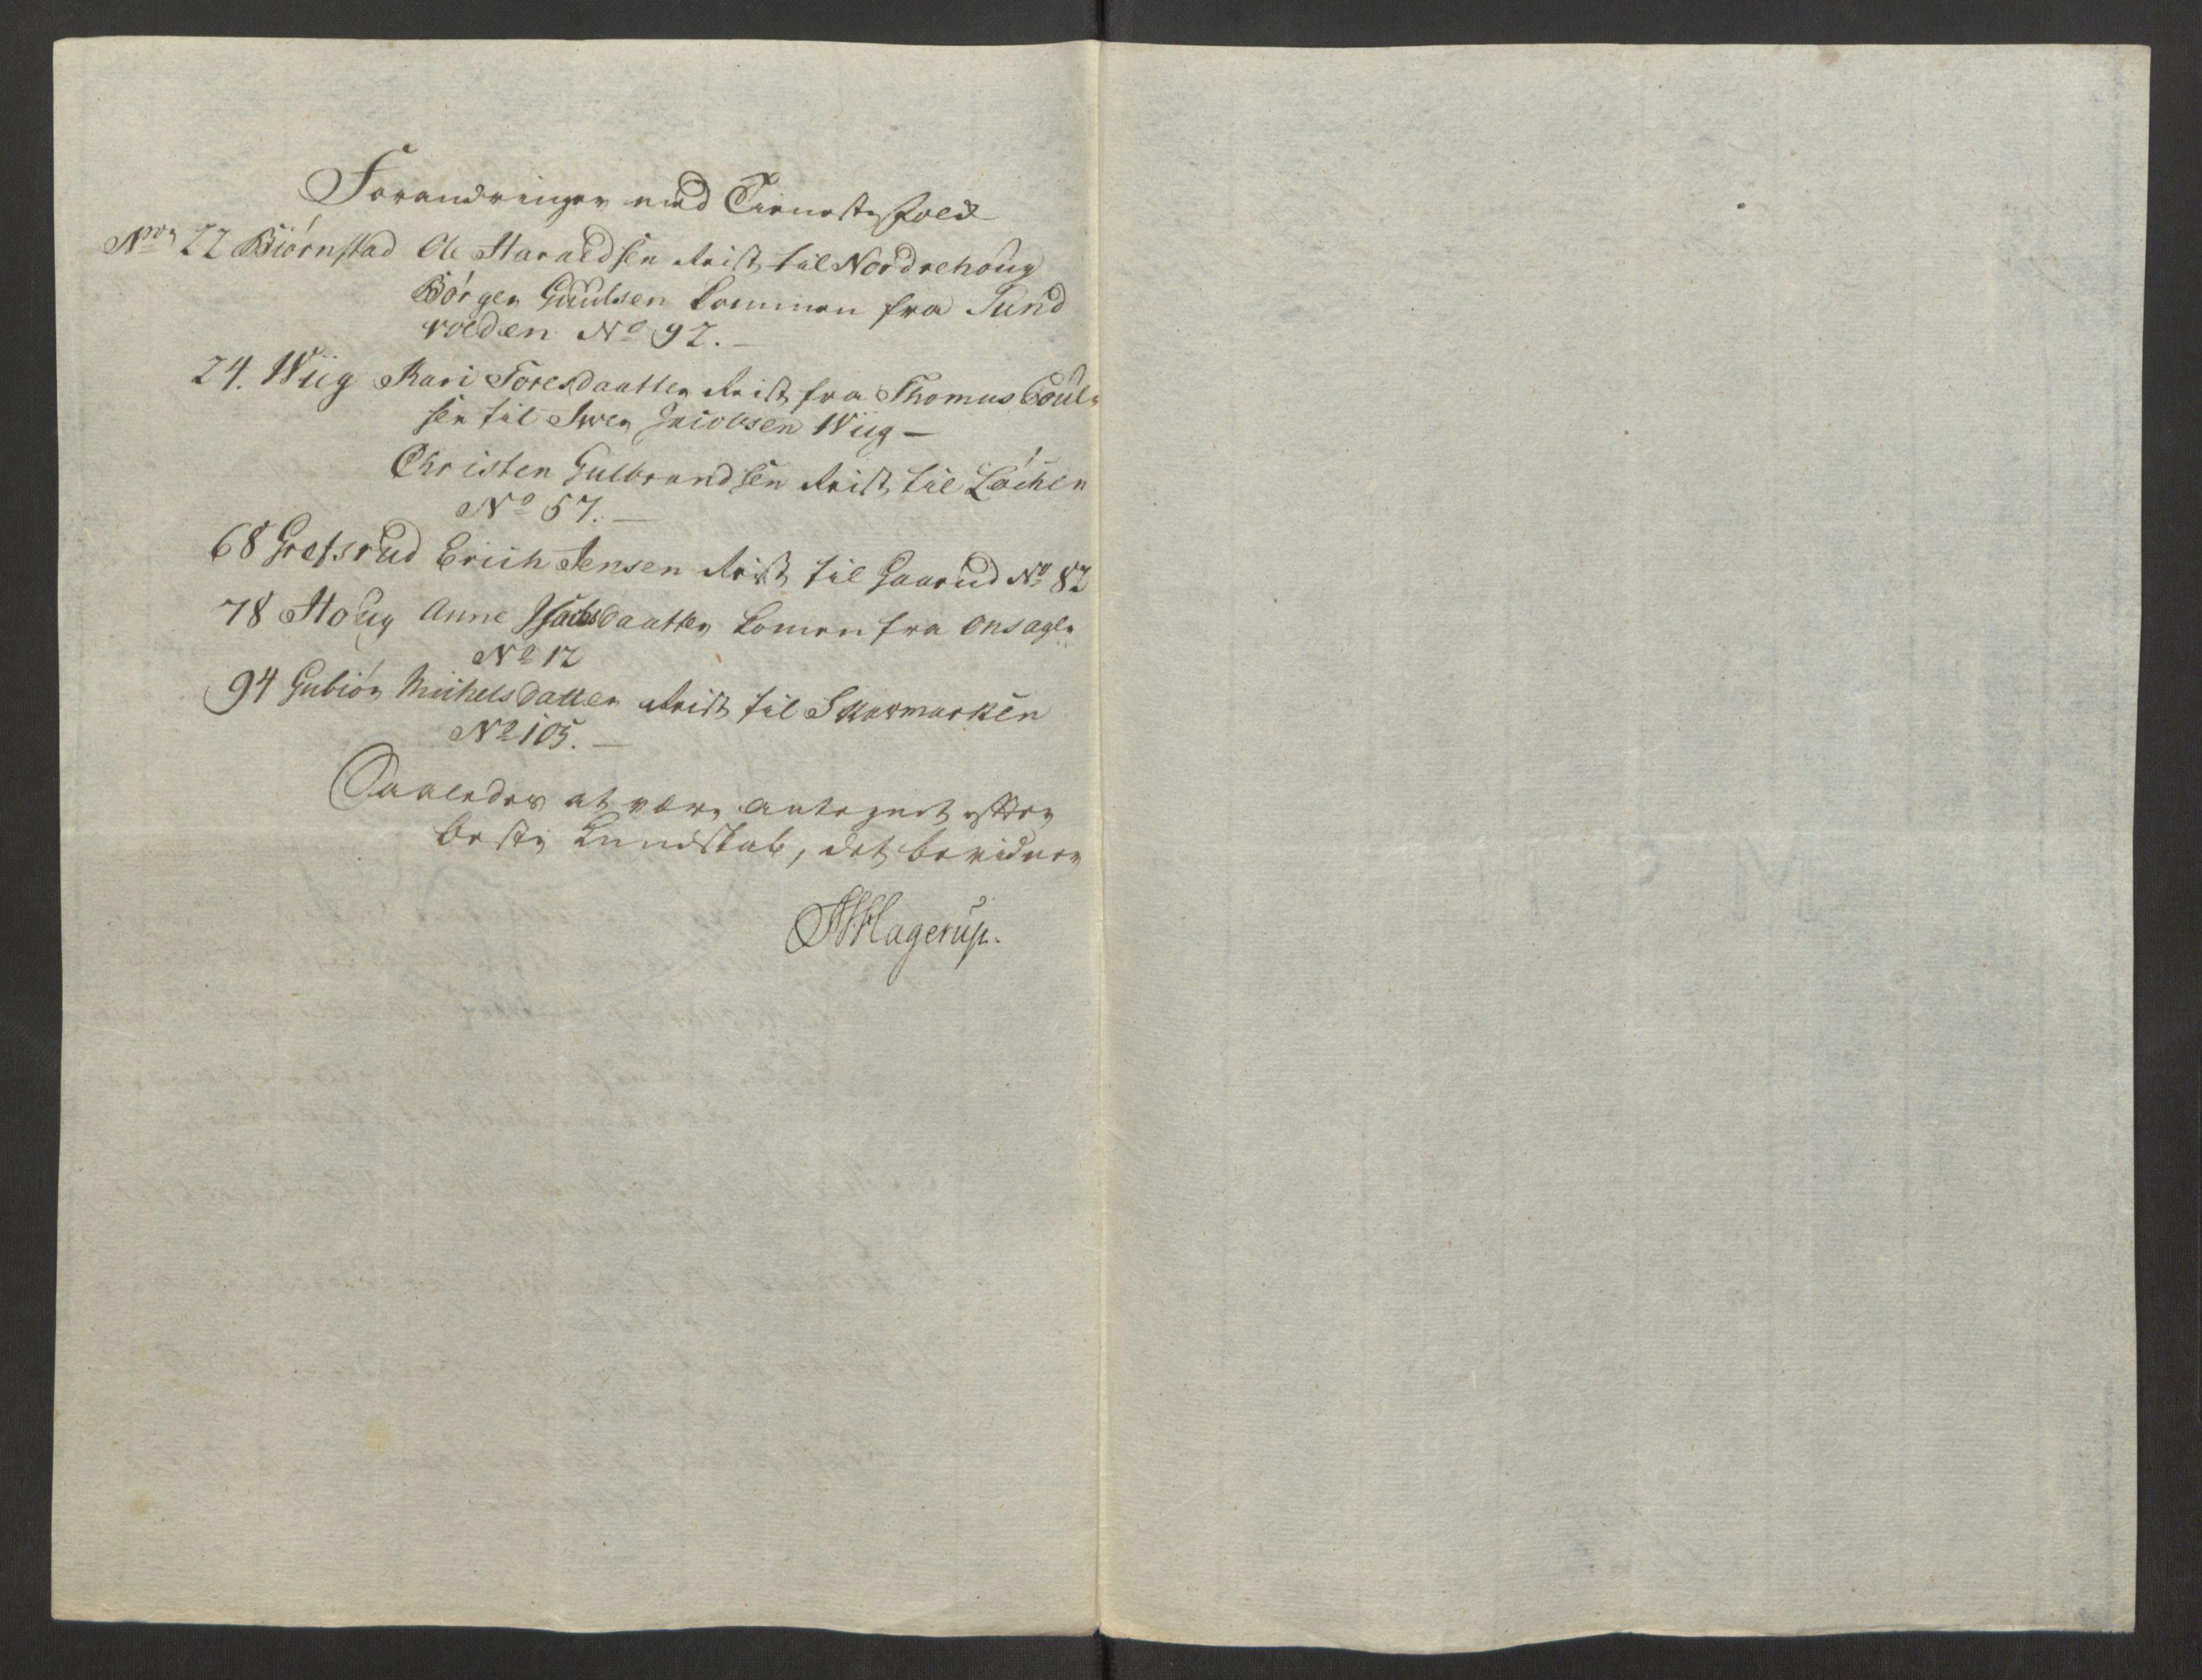 Forandringer med Tienestefolk
No 22 Biørnstad Ole Haraldsen Reist til Nordrehoug
Børger Guulsen kommen fra Sund
volden No 92. —
24. Wiig Kari Toresdaatter Reist fra Thomas Poul
sen til Iver Jacobsen Wiig —
Christen Gulbrandsen Reist til Løchen
No 57. —
68 Grefsrud Erich Jensen Reist til Gaarud No 82
78 Houg Anne daatter komen fra Onsager
No 12
94 Gubiør Michelsdatter Reist til Skovmarken
No 105. —
Saaledes at være antegnet efter
beste Kundskab, det bevidner
Hagerup.